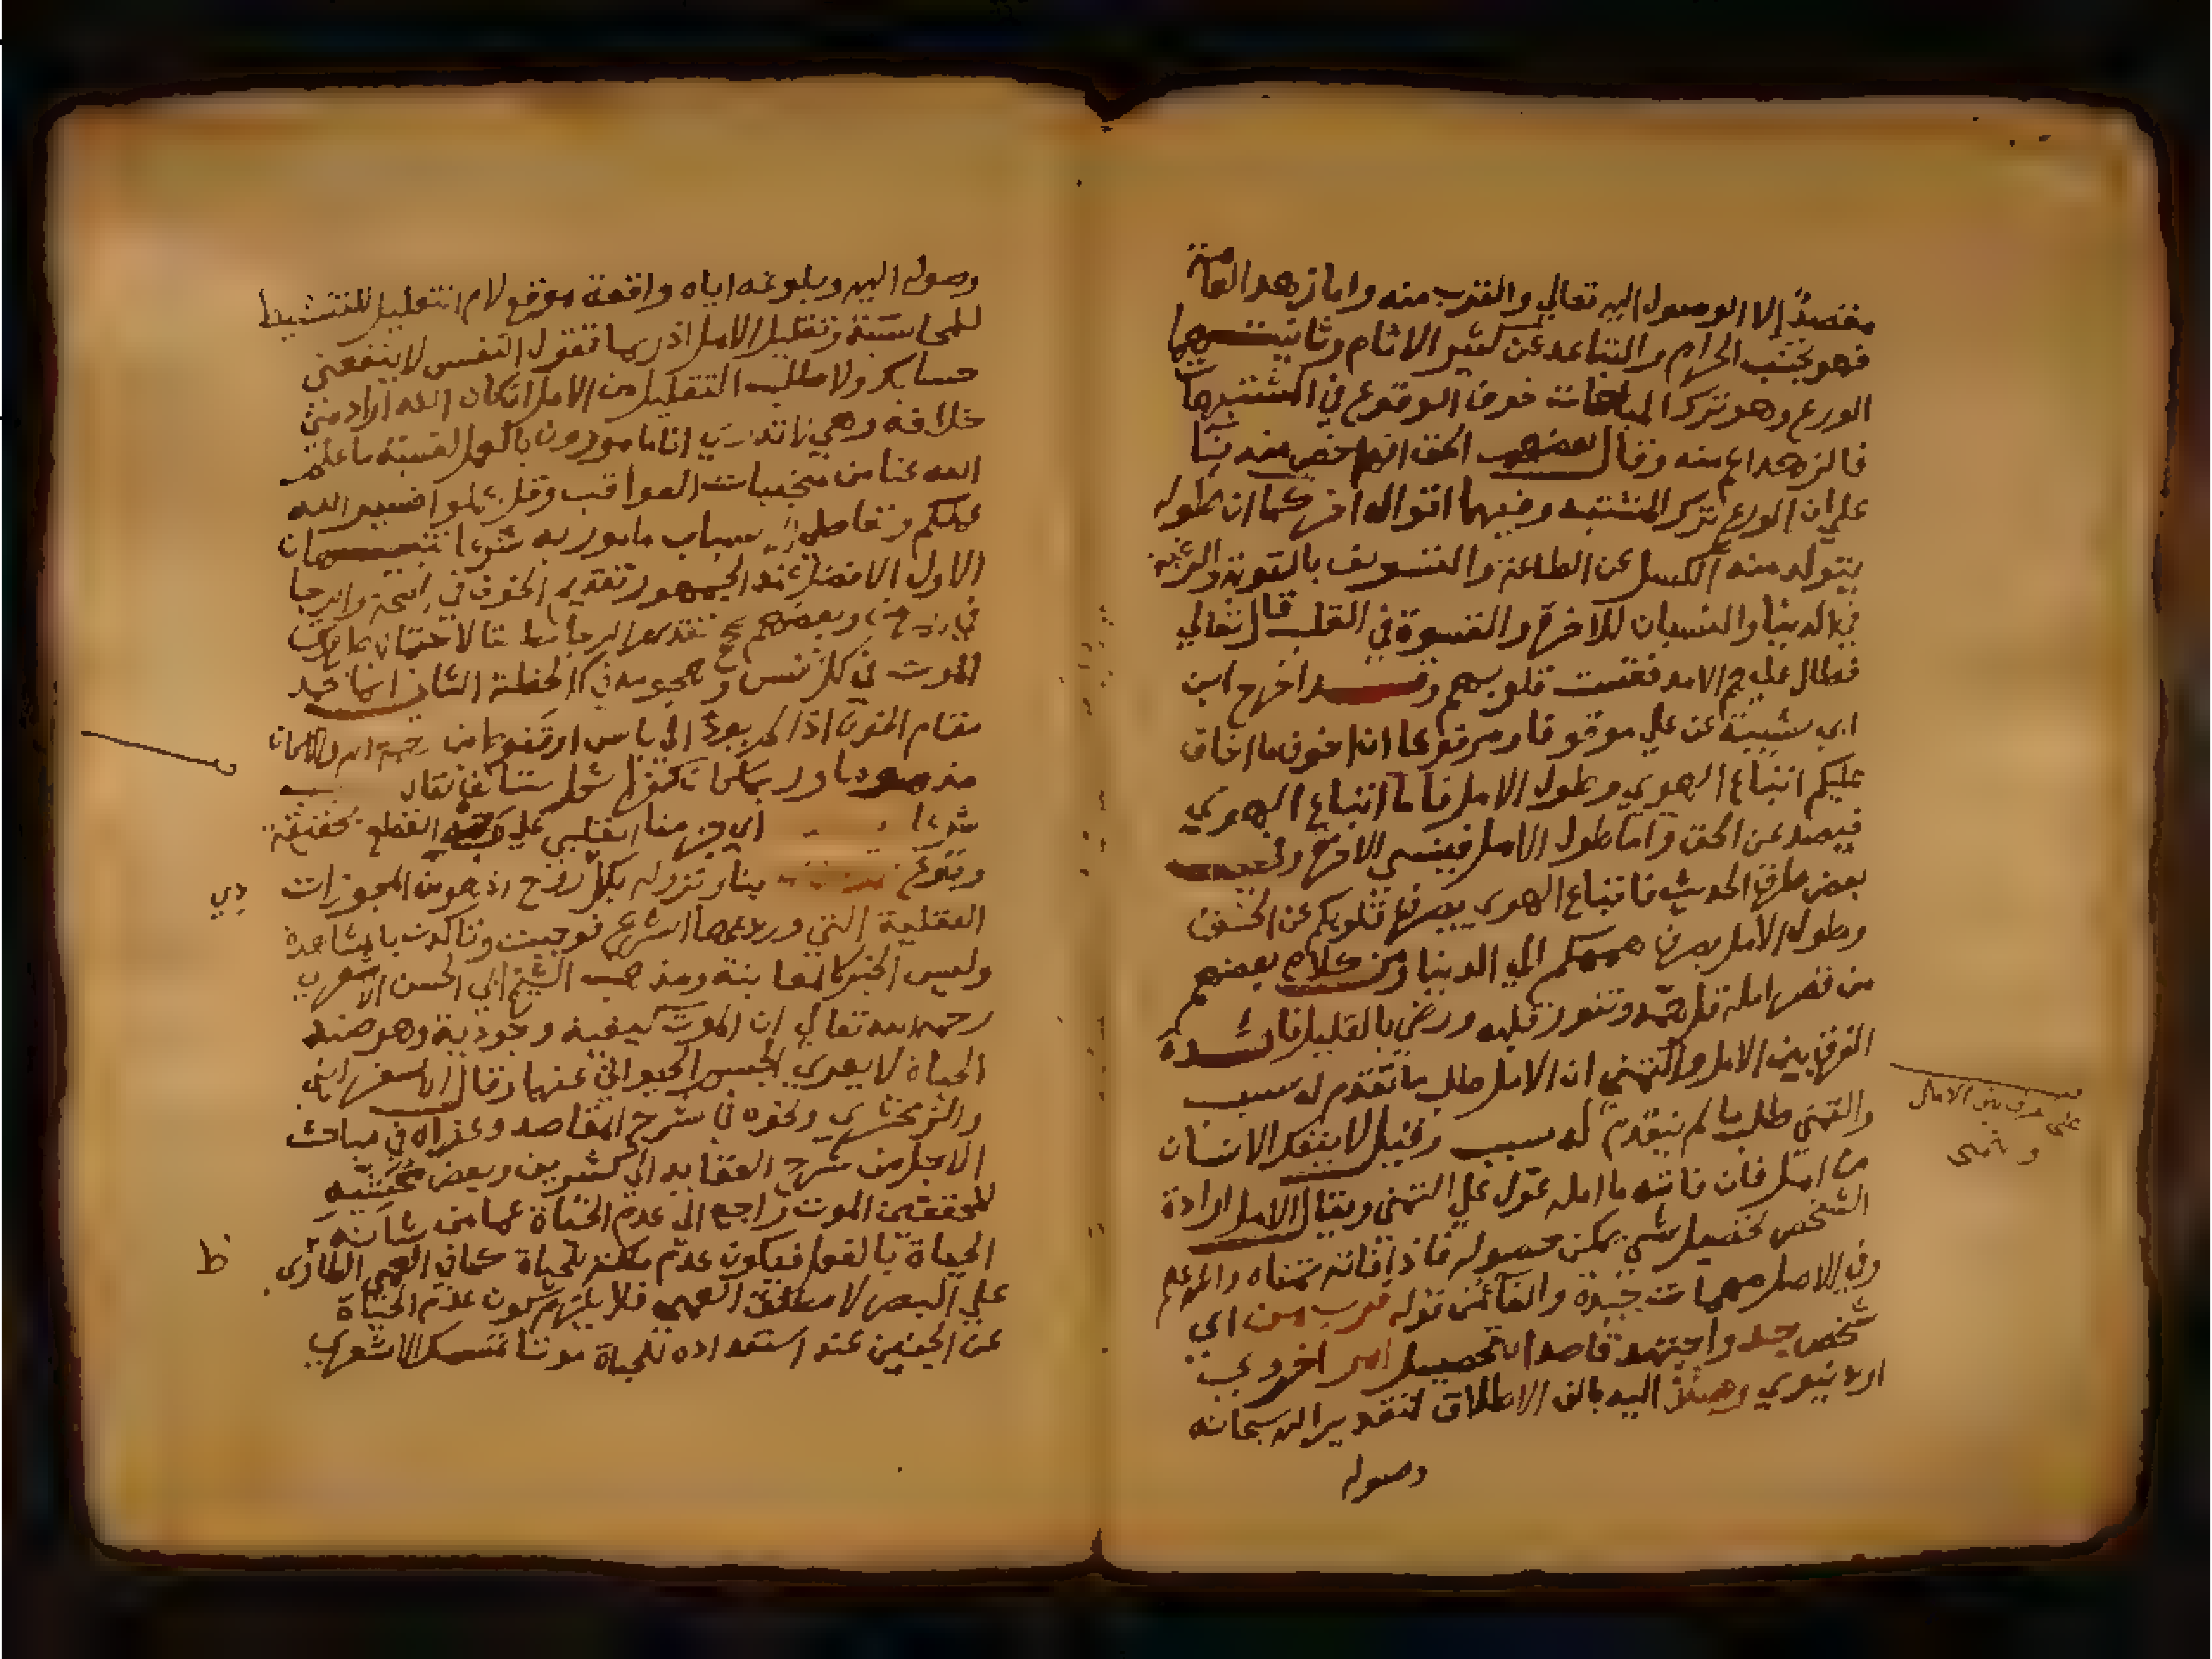 مقصدا إلا الوصول اليه تعالي والقرب منه واما زهد العامة
فهو تجنب الحرام والتباعد عن كثير الاثام وثانيتهما
الورع وهو ترك المباحات خوف الوقوع في المشتبهات
فالزهد اعم منه وقال بعضهم الحق انه اخص منه بنا
علي ان الورع ترك المشتبه وفيهما اقوال اخر كما ان طوله
يتولد منه الكسل عن الطاعة والتسويف بالتوبة والرغبة
في الدنيا والنسيان للاخرة والقسوة في القلب قال تعالي
فطال عليهم الامد فقست قلوبهم وقد اخرج ابن
ابي شيبة عن علي موقوفا ومرفوعا ان اخوف ما اخاف
عليكم اتباع الهوي وطول الامل فاما اتباع الهوي
فيصد عن الحق واما طول الامل فينسي الاخرة وفي
بعض طرق الحديث فاتباع الهوي يصرف قلوبكم عن الحق
وطول الامل يصرف هممكم الي الدنيا ومن كلام بعضهم
من قصر امله قل همه وتنور قلبه ورضي بالقليل فائدة
الفرق بين الامل والتمني ان الامل طلب ما تقدم له سبب
والتمني طلب ما لم يتقدم له سبب وقيل لا ينفك الانسان
من امل فان فاته ما امله عول علي التمني ويقال الامل ارادة
الشخص تحصيل شي يمكن حصوله فاذا فاته تمناه
وفي الاصل مهمات جيدة والفا من قوله فرب من اي
شخص جد واجتهد قاصدا تحصيل امر اخروي
او دنيوي وصل اليه بالف الاطلاق لتقدير الله سبحانه
وصوله
علي فرق بين الامل
و تمني
وصوله اليه وبلوغه اياه واقعة موقع لام التعليل للتنشيط
للمحاسبة وتقليل الامل اذ ربما تقول النفس لا ينفعني
حسابك ولا طلب التقليل من الامل ان كان الله اراد مني
خلافه وهي لا تدري انا مامورون بالعمل لقسمة ما علم
الله عنا من مخبيات العواقب وقل اعملوا فسيري الله
عملكم وتعاطي الاسباب مامور به شرعا تنبيهان
الاول الافضل عند الجمهور تقديم الخوف في الصحة والرجا
في وبعضهم تقديم الرجا مطلقا لاحتمال
الموت في كل نفس وهجومه في كل لحظة الثاني انما حمد
مقام الخوف اذا لم يعد الي ياس او قنوط من رحمة الله
مذموما وربما كان كفرا ثم استانف فقال
اي جزمنا القلبي علي وجه القطع بحقيقة
وقوع بنا ونزوله بكل روح اذ هو من المجوزات
العقلية التي ورد بها الشرع فوجبت وتاكدت بالمشاهدة
وليس الخبر كالمعاينة ومذهب الشيخ ابي الحسن الاشعري
رحمه الله تعالي ان الموت كيفية وجودية وهو ضد
الحياة لا يعري الجسم الحيواني عنهما وقال الاسفرايني
والزمخشري ونحوه في شرح المقاصد وعزاه في مباحث
الاجل من شرح العقايد الي كثيرين وبعض محشيه
للمحققين الموت راجع الي عدم الحياة عما من شانه
الحياة بالفعل فيكون عدم ملكة للحياة كما في العمي الطاري
علي البصر لا مطلق العمي فلا يلزم كون عدم الحياة
عن الجنين عند استعداده للحياة موتا تمسك الاشعري
ط